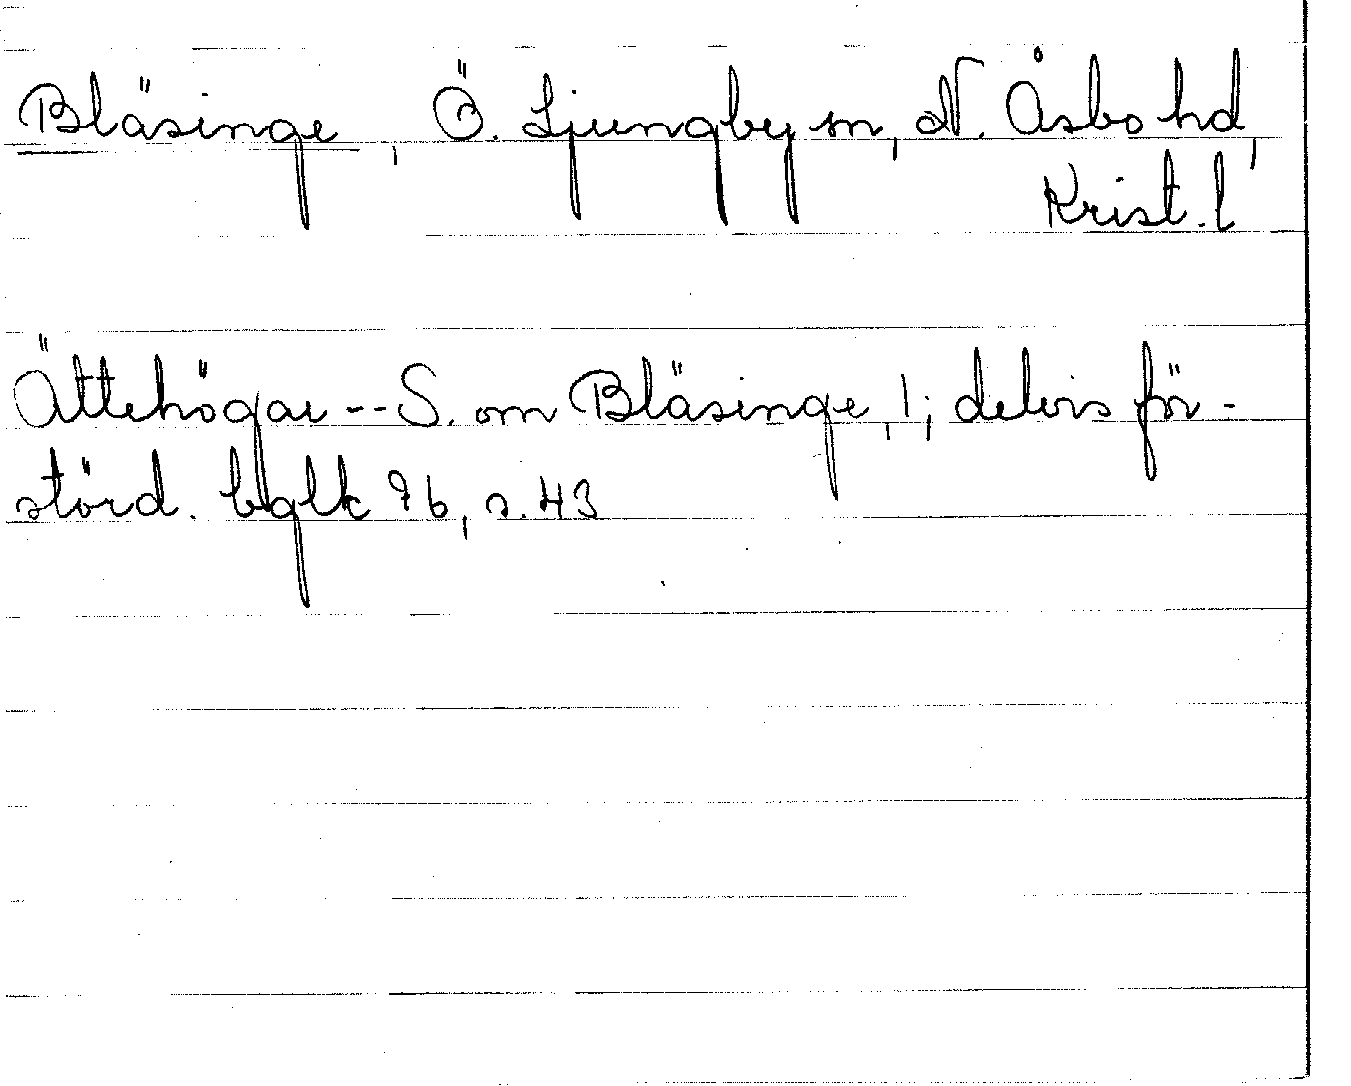 Bläsinge, Ö. Ljungby sn, N. Åsbo hd,
Krist. l
Ättehögar -- S. om Bläsinge, 1; delvis för-
störd. bglk 9b, s. 43